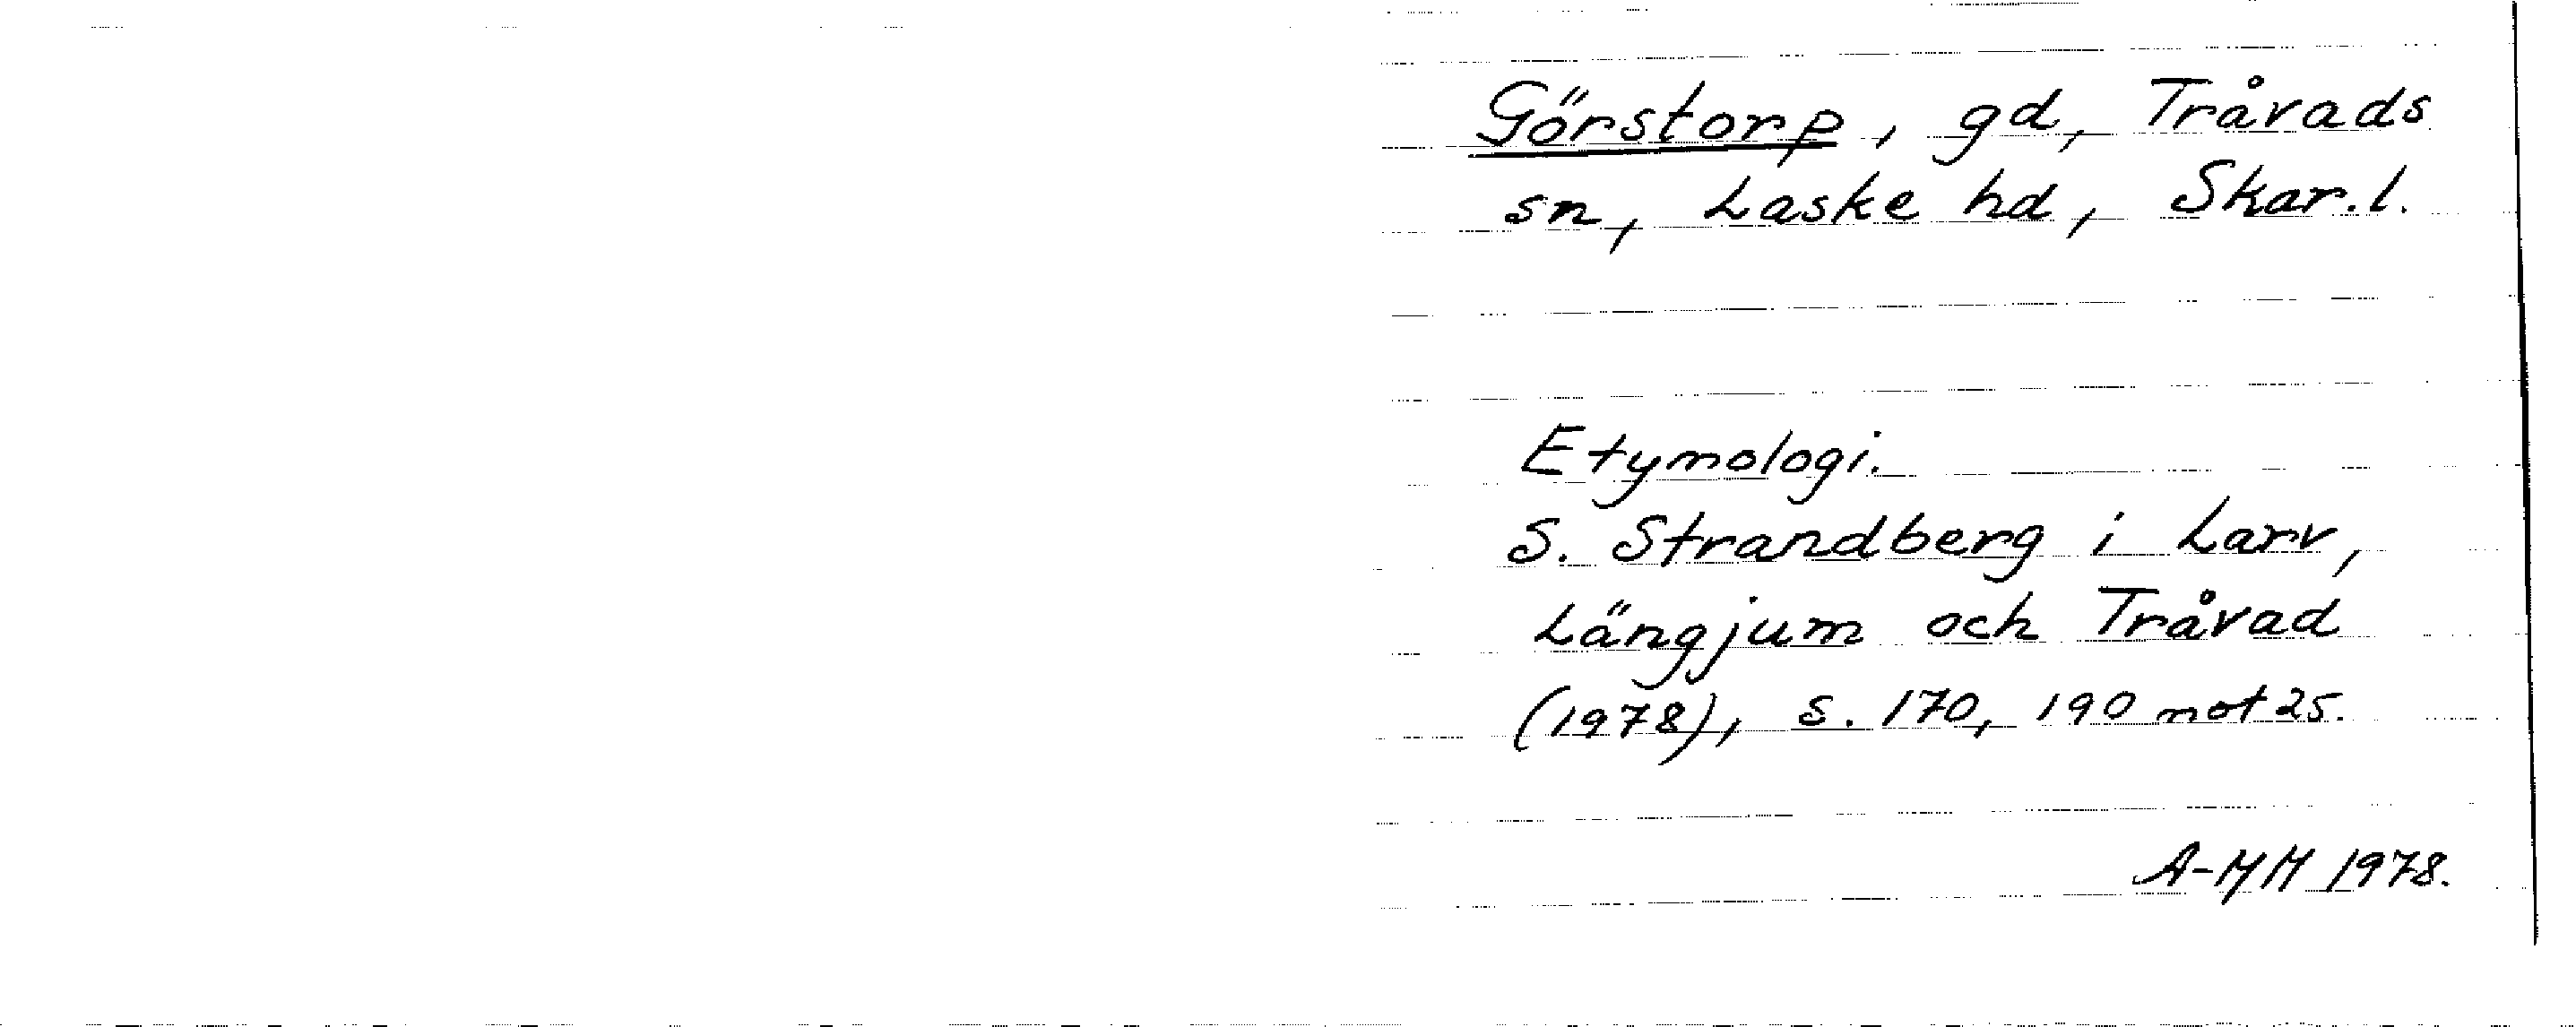 Görstorp, gd, Tråvads
sn, Laske hd, Skar.l.
Etymologi.
S. Strandberg i Larv,
Längjum och Tråvad
(1978), s. 170, 190 not 25.
A-MM 1978.